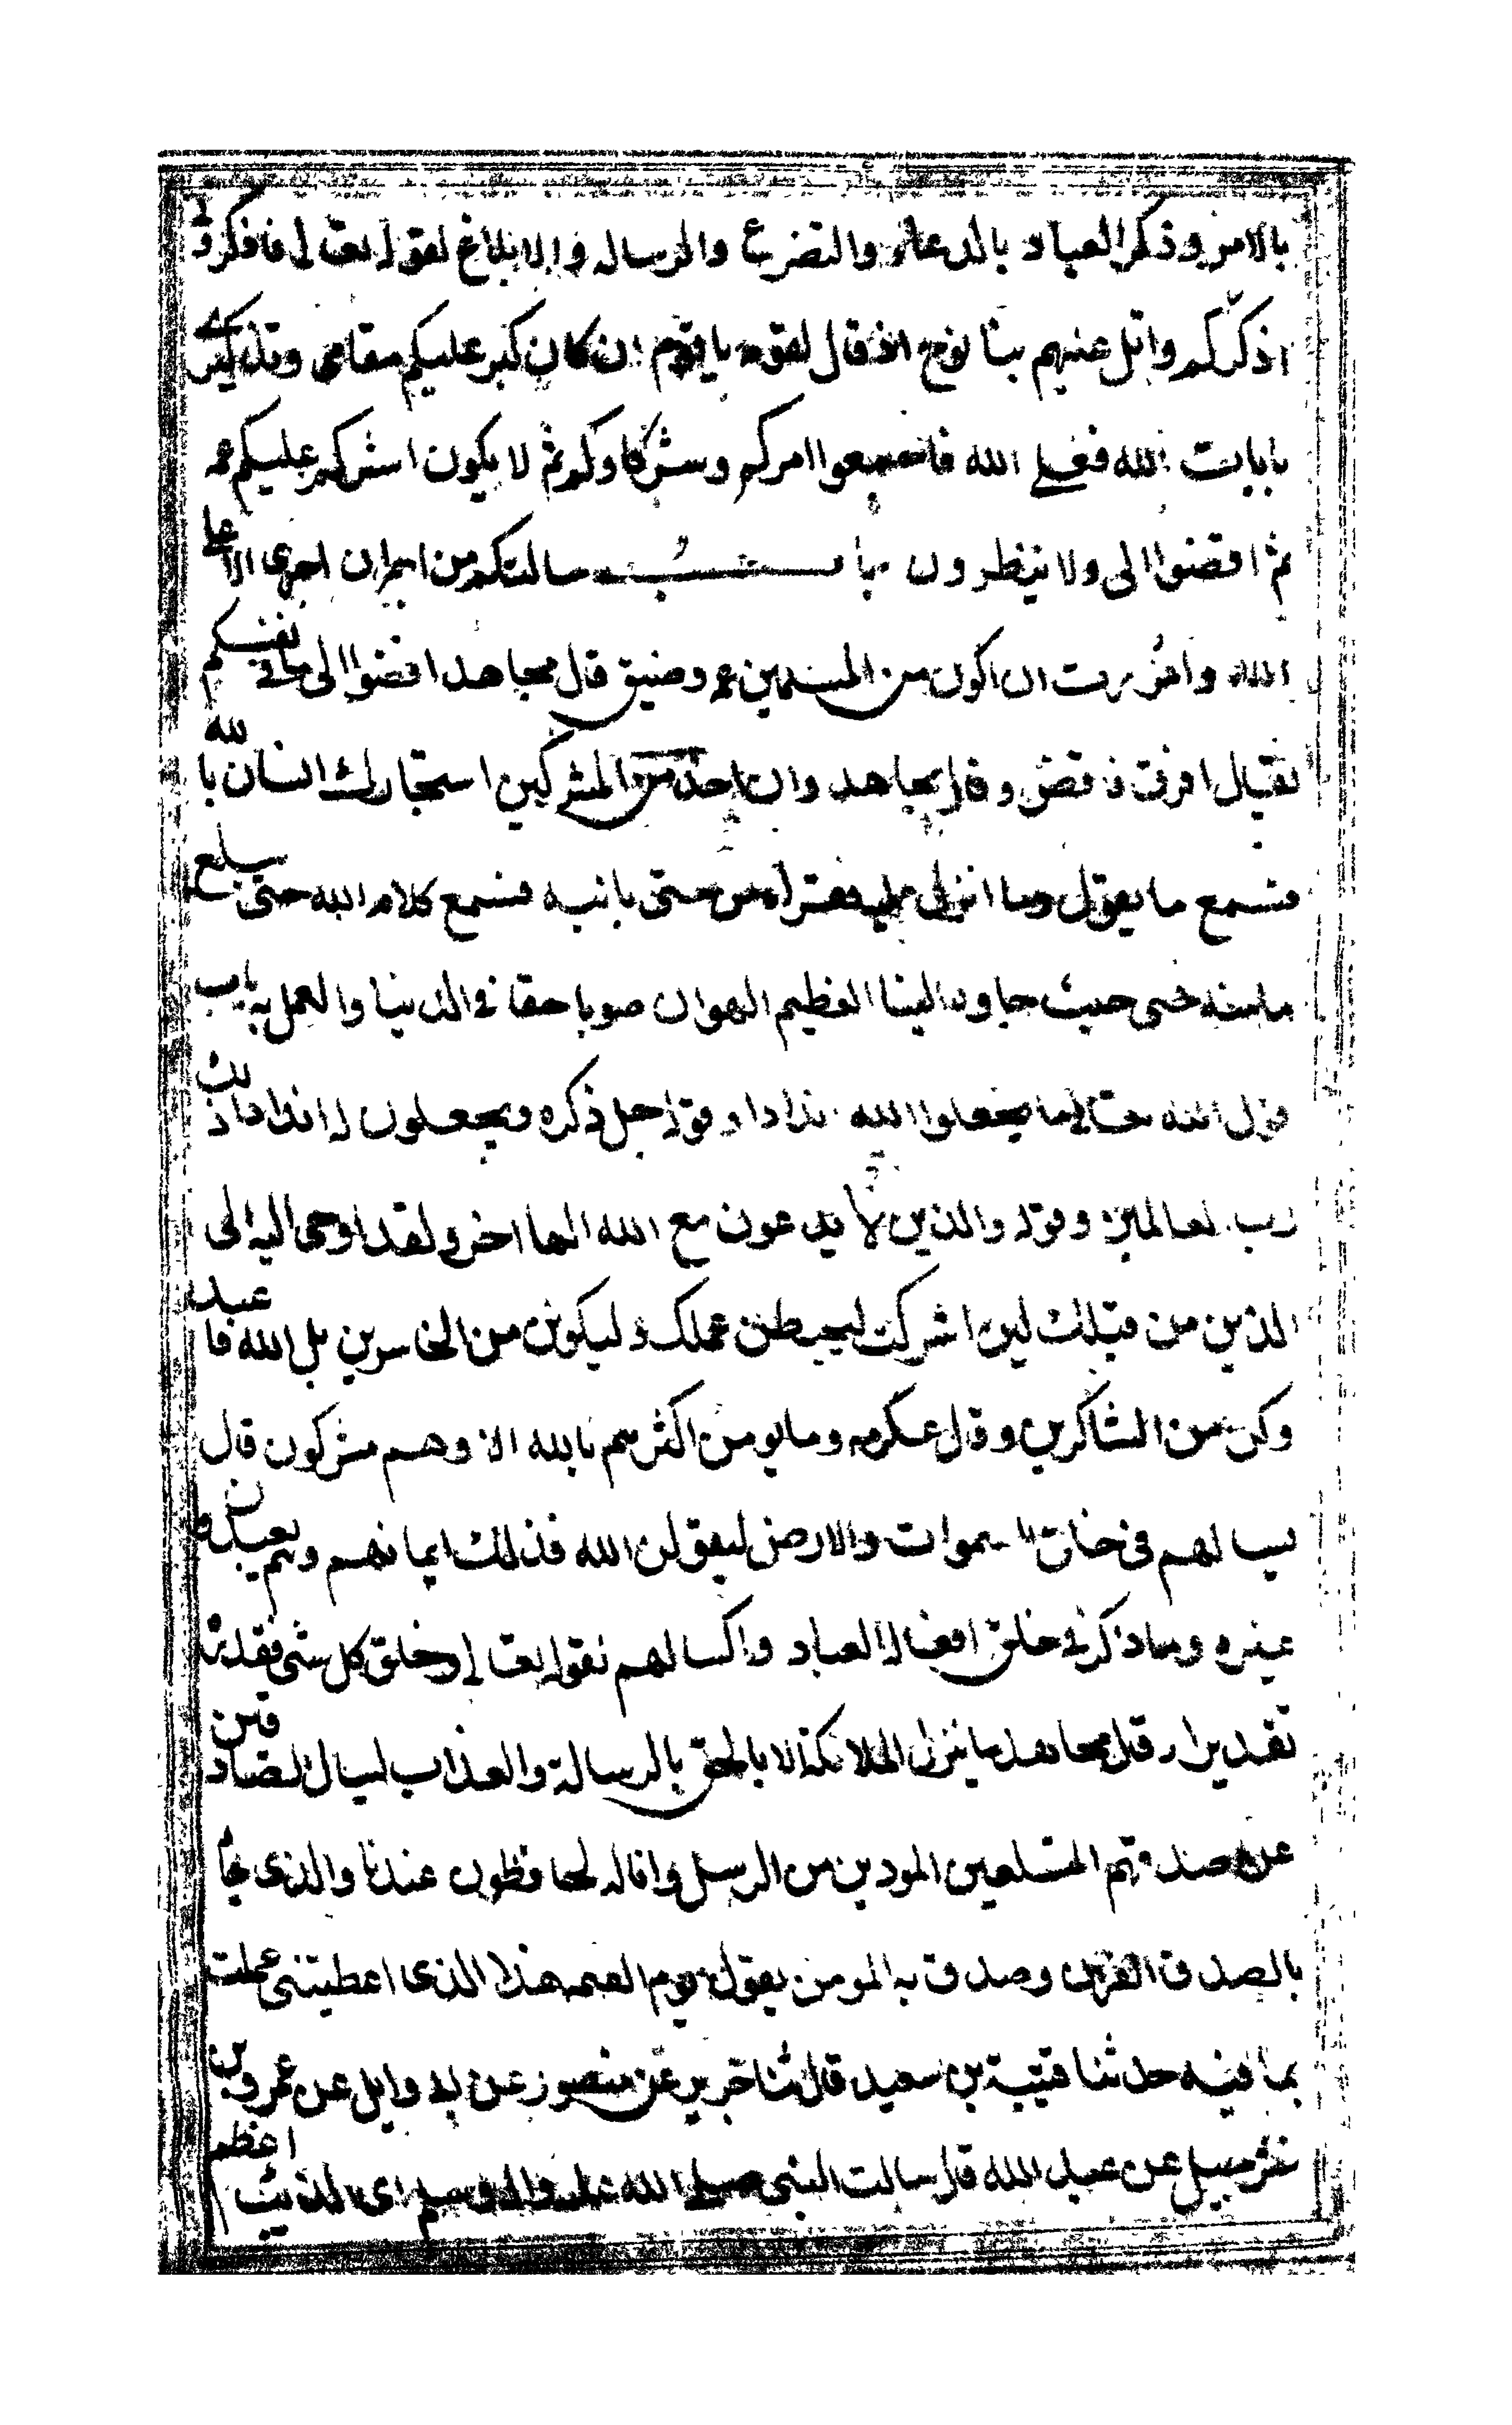 بالامر وذكر العباد بالدعاء والتضرع والرساله والابلاغ لقوله تعالى فاذكرونى
اذكركم واتل عليهم نبا نوح اذ قال لقومه يا قوم ان كان كبر عليكم مقامى وتذكيرى
بايات الله فعلى الله فاجمعوا امركم وشركاوكم ثم لا يكون امركم عليكم غمه
ثم اقضوا الى ولا تنظرون سالتكم من اجر ان اجرى الا على
الله وامرت ان اكون من المسلمين غمه وضيق قال مجاهد اقضوا الى ما فى نفسكم
يقال افرق فاقض وقال مجاهد وان احد من المشركين استجارك انسان يا لله
فيسمع ما يقول وما انزل عليه فهو امن حتى ياتيه فيسمع كلام الله حتى يبلغ
مامنه حيث جاوه النبا العظيم القران صوابا حقا فى الدنيا والعمل به باب
قول الله تعالى فلا تجعلوا لله اندادا وقوله جل ذكره وتجعلون له اندادا ذلك
رب العالمين وقوله والذين لا يدعون مع الله الها اخر ولقد اوحى اليه الى
الذين من قبلك لين اشركت ليحبطن عملك وليكونن من الخاسرين بل الله فاعبد
وكن من الشاكرين وقال عكرمه وما يومن اكثرهم بالله الا وهم مشركون قال
يسالهم من خلق السموات والارض ليقولن الله فذلك ايمانهم وهم يعبدون
غيره وما ذكر فى خلق افعال العباد واكسابهم لقوله تعالى وخلق كل شى فقدره
تقديرا وقال مجاهد ما تنزل الملائكة الا بالحق بالرسالة والعذاب ليسال الصادقين
عن صدقهم المبلغين المودين من الرسل وانا له لحافظون عندنا والذى جا
بالصدق القران وصدق به المومن يقول يوم القيمه هذا الذى اعطيتنى عملت
بما فيه حدثنا قتيبة بن سعيد قال ثنا جرير عن منصور عن ابى وايل عن عمرو بن
شرحبيل عن عبد الله قال سالت النبى صلى الله عليه واله وسلم اى الذنب اعظم